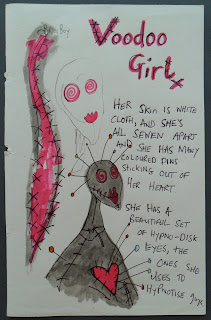 Voodoo
Girl
HER SKIN IS WHITE
CLOTH, AND SHE'S
ALL SEWEN APART
AND SHE HAS MANY
COLOURED PINS
STICKING OUT OF
HER HEART
SHE HAS A
BEAUTIFUL SET
OF HYPNO-DISK
EYES, THE
ONES SHE
USES TO
HYPNOTISE guys